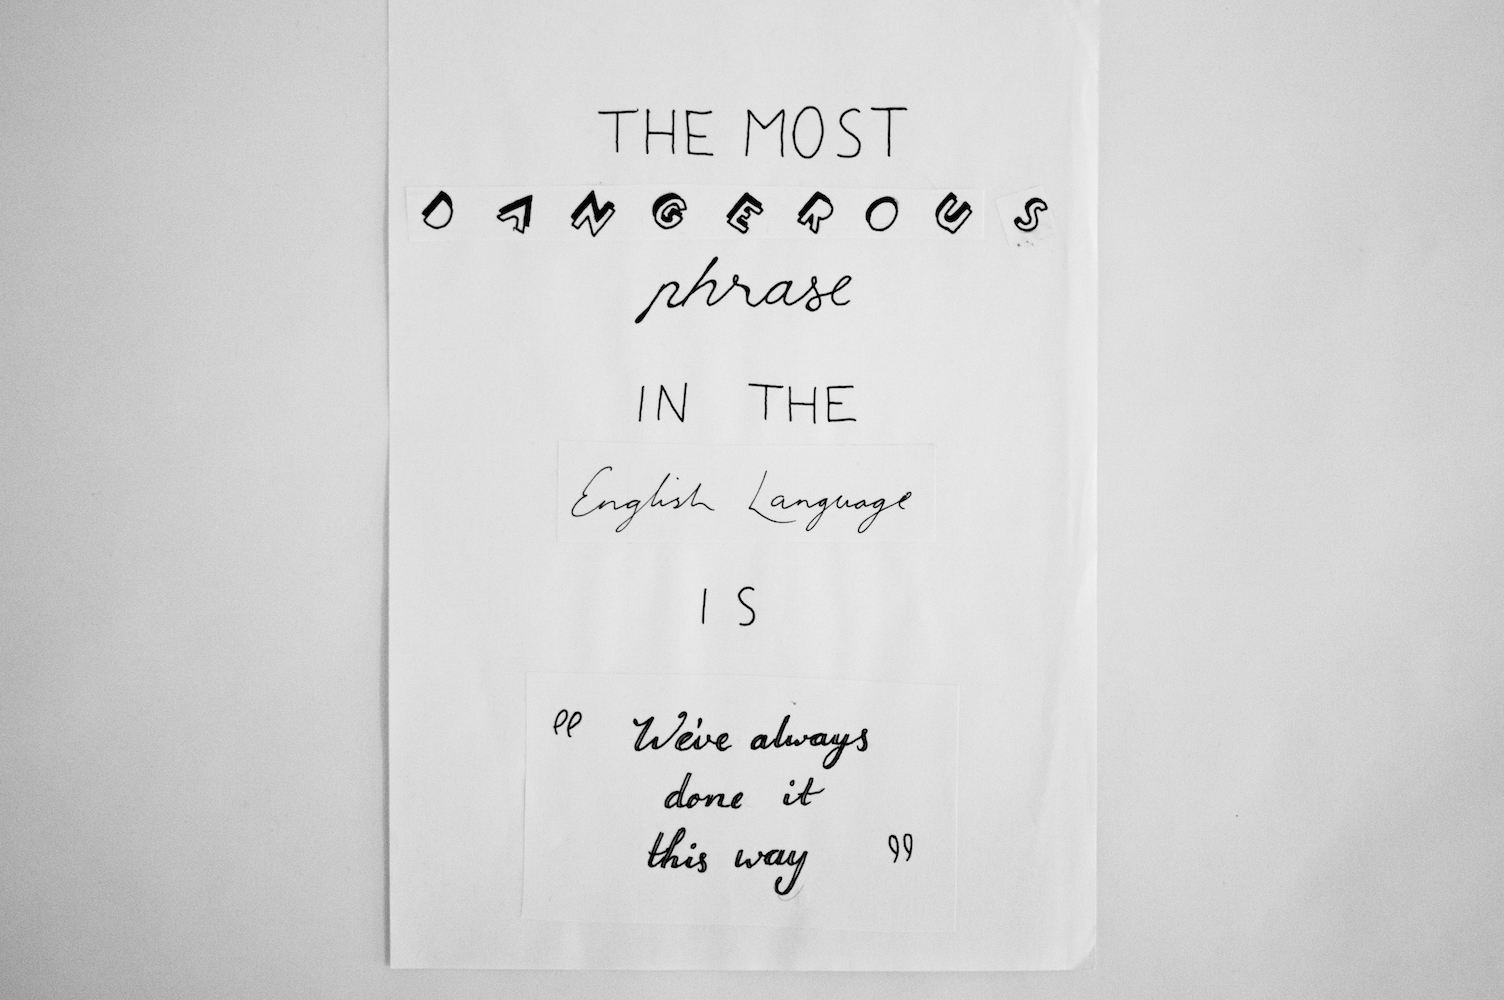 THE MOST
DANGEROUS
phrase
IN THE
English Language
IS
"We've always
done it
this way"